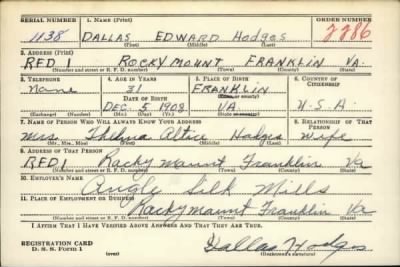 SERIAL NUMBER 1. NAME (Print) ORDER NUMBER
1138 DALLAS EDWARD Hodges 2286
(First) (Middle) (Last)
2. ADDRESS (Print)
RFD 1 ROCKY MOUNT FRANKLIN VA.
(Number and street or R. F. D. number) (Town) (County) (State)
3. TELEPHONE 4. AGE IN YEARS 5. PLACE OF BIRTH 6. COUNTRY OF CITIZENSHIP
None 31 FRANKLIN
DATE OF BIRTH (Town or county)
DEC. 5 1908 VA U.S.A.
(Exchange) (Number) (Mo.) (Day) (Yr.) (State or country)
7. NAME OF PERSON WHO WILL ALWAYS KNOW YOUR ADDRESS 8. RELATIONSHIP OF THAT PERSON
Mrs. Thelma Altice Hodges Wife
(Mr., Mrs., Miss) (First) (Middle) (Last)
9. ADDRESS OF THAT PERSON
RFD 1 Rocky Mount Franklin Va
(Number and street or R. F. D. number) (Town) (County) (State)
10. EMPLOYER'S NAME
Angle Silk Mills
11. PLACE OF EMPLOYMENT OR BUSINESS
Rocky Mount Franklin Va
(Number and street or R. F. D. number) (Town) (County) (State)
I AFFIRM THAT I HAVE VERIFIED ABOVE ANSWERS AND THAT THEY ARE TRUE.
REGISTRATION CARD
D. S. S. Form 1 (over) Dallas Hodges
(Registrant's signature)